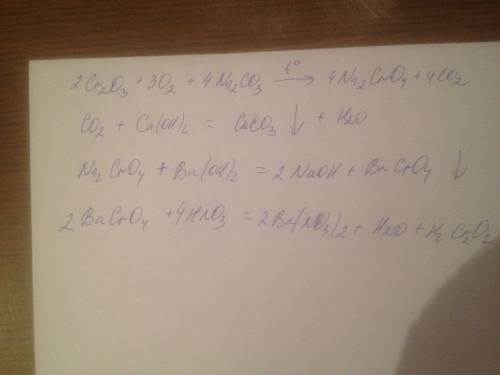 2Cr₂O₃ + 3O₂ + 4Na₂CO₃ —t°→ 4Na₂CrO₄ + 4CO₂
CO₂ + Ca(OH)₂ = CaCO₃ ↓ + H₂O
Na₂CrO₄ + Ba(OH)₂ = 2NaOH + BaCrO₄ ↓
2BaCrO₄ + 4HNO₃ = 2Ba(NO₃)₂ + H₂O + H₂Cr₂O₂